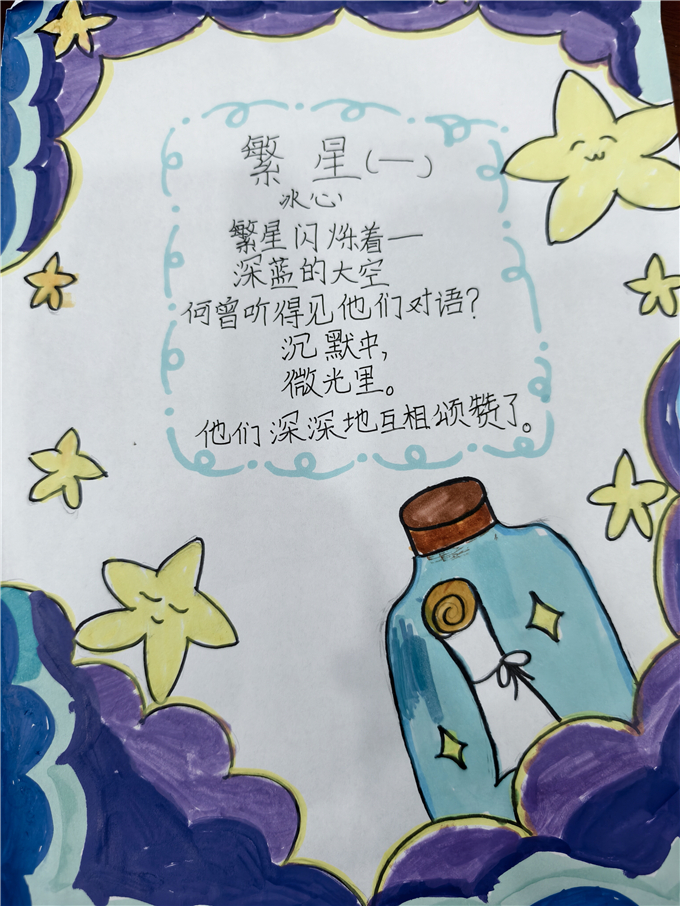 繁星(一)
冰心
繁星闪烁着一
深蓝的大空
何曾听得见他们对语?
沉默中,
微光里。
他们深深地互相颂赞了。